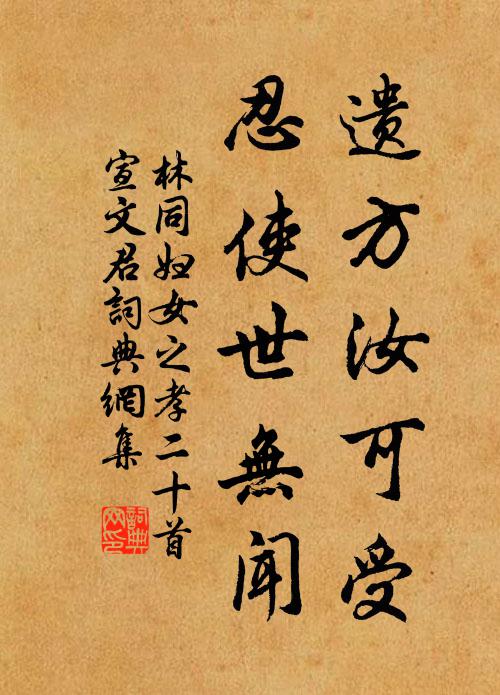 遺方汝可受
忍使世無聞
林同妇女之孝二十首
宣文君詞典網集
詞典網印